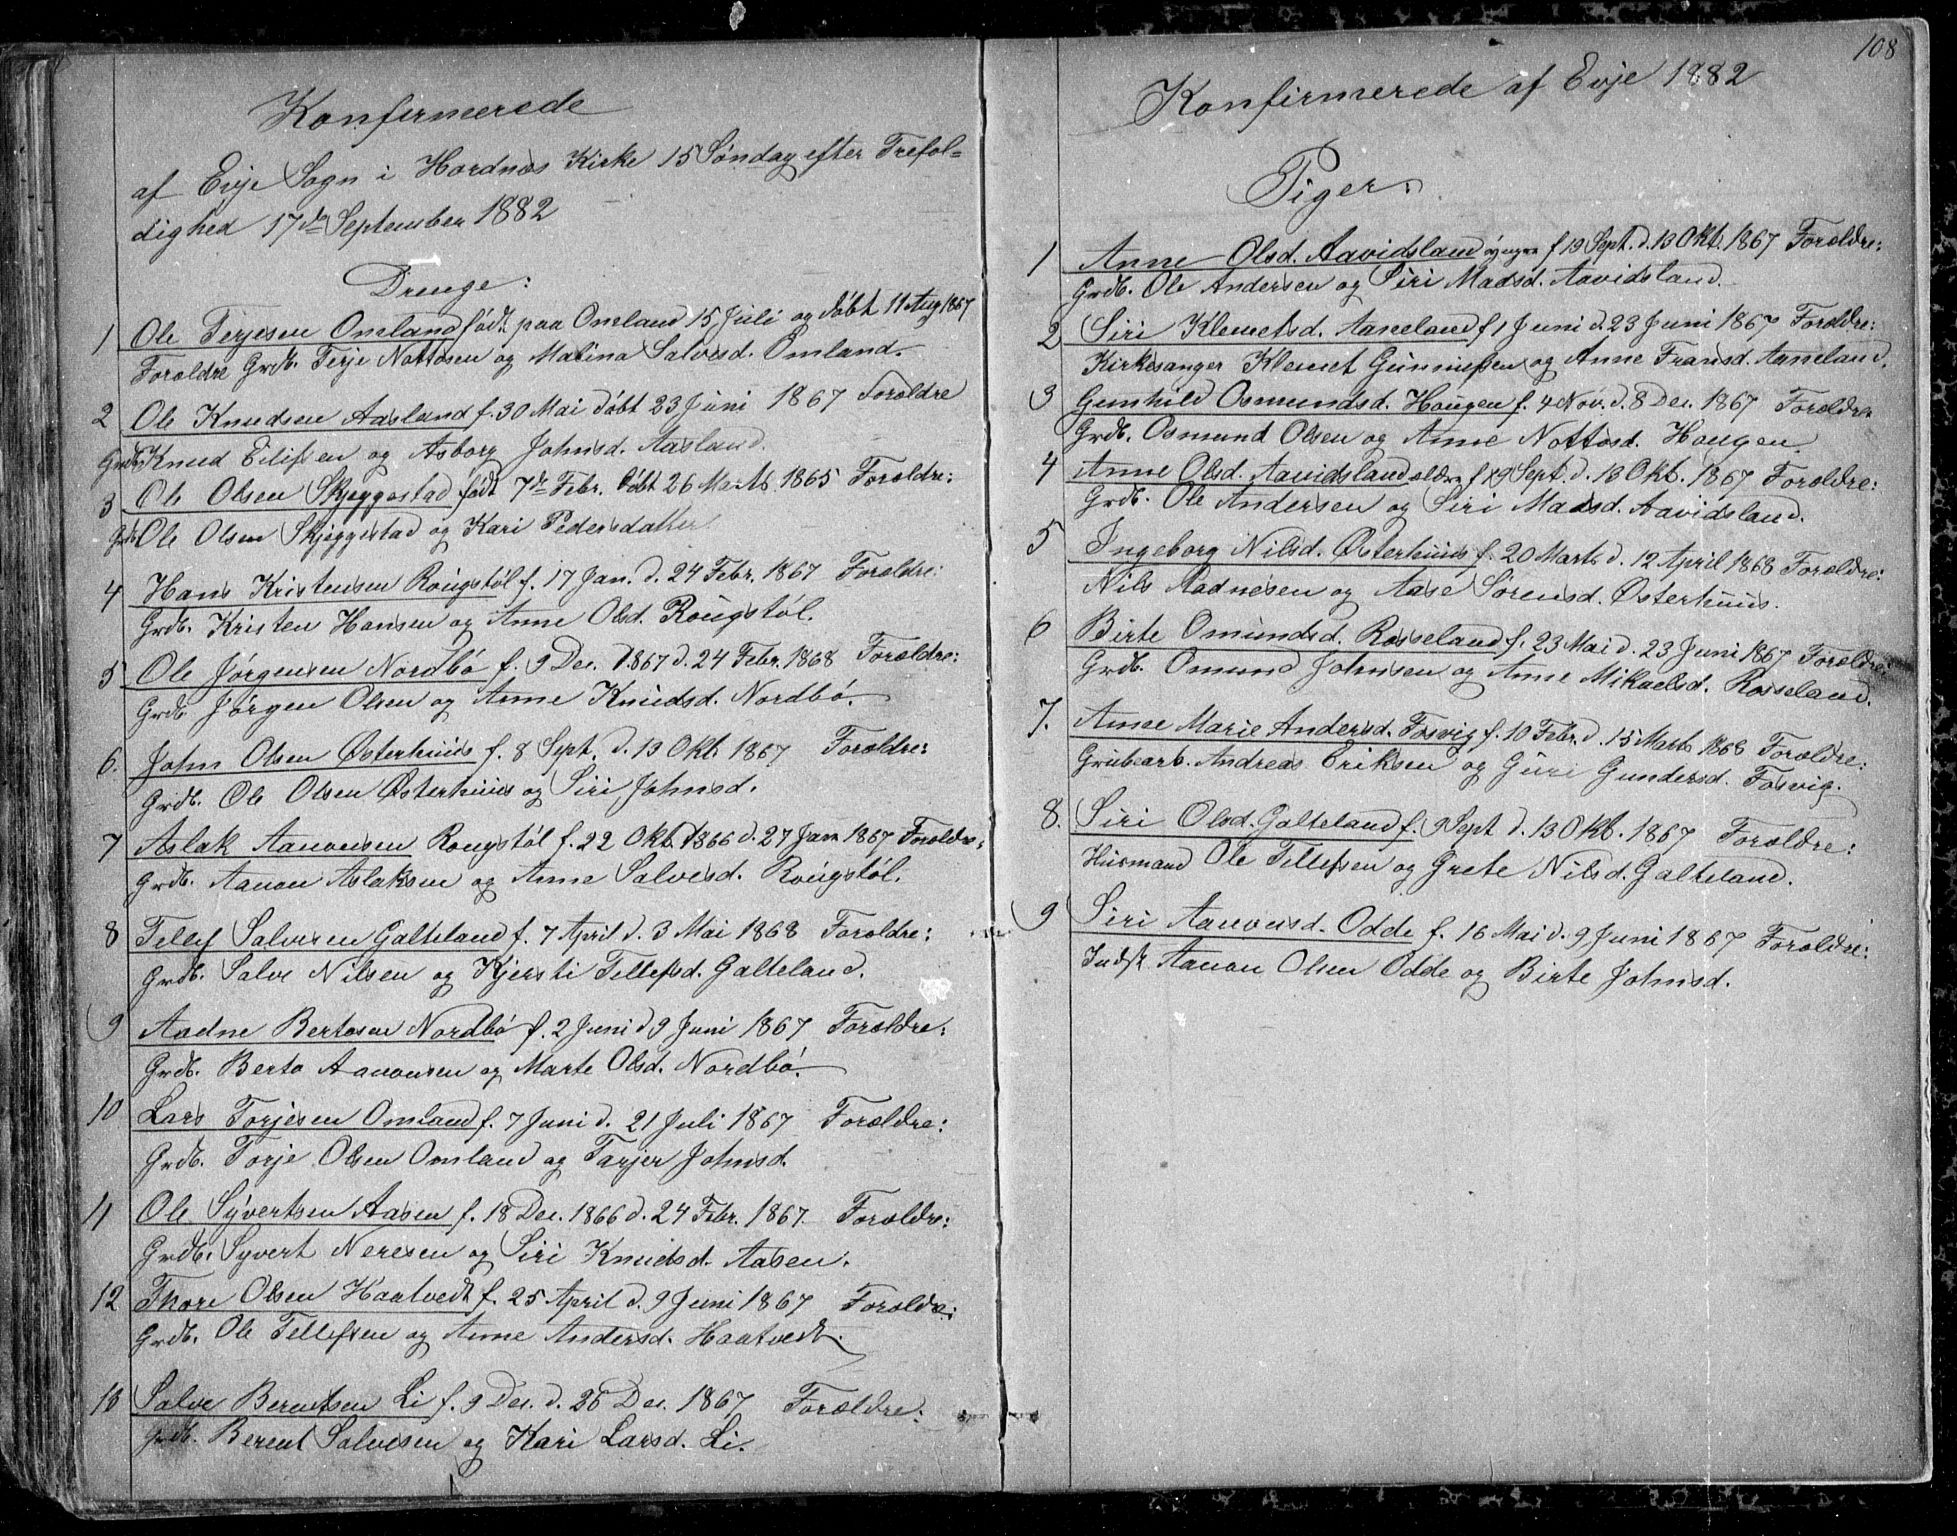 Konfirmerede
af Evje Sogn i Hordnes Kirke 15 Søndag efter Trefol=
dighed 17de September 1882
Drenge:
1 Ole Terjesen Omland født paa Omland 15 Juli og døbt 11 Aug 1867
Foroldre Grdb. Terje Nottosen og Malina Salvesd. Omland.
2 Ole Knudsen Aasland f. 30 Mai døbt 23 Juni 1867 Foroldre
Grdb. Knud Eilifsen og Asborg Johnsd. Aasland.
3 Ole Olsen Skjeggestad født 7de Febr. døbt 26 Marts 1865 Foroldre:
Grdb. Ole Olsen Skjeggestad og Kari Pedersdatter
4 Hans Kristensen Rougstøl f. 17 Jan. d. 24 Febr. 1867 Foroldre:
Grdb. Kristen Hansen og Anne Olsd. Rougstøl.
5 Ole Jørgensen Nordbø f. 9 Dec. 1867 d. 24 Febr. 1868 Foroldre:
Grdb. Jørgen Olsen og Anne Knudsd. Nordbø.
6. John Olsen Østerhuus f. 8 Sept. d. 13 Okt. 1867 Foroldre:
Grdb. Ole Olsen Østerhuus og Siri Johnsd.
7 Aslak Aanonsen Rougstøl f. 22 Okt. 1866 d. 27 Jan 1867 Foroldre:
Grdb. Aanon Aslaksen og Anne Salvesd. Rougstøl.
8 Tellef Salvesen Galteland f. 7 April d. 3 Mai 1868 Foroldre:
Grdb. Salve Nilsen og Kjersti Tellefsd. Galteland.
9 Aadne Bertosen Nordbø f. 2 Juni d 9 Juni 1867 Foroldre:
Grdb. Berto Aanonsen og Marte Olsd. Nordbø.
10 Lars Torjesen Omland f. 7 Juni d. 21 Juli 1867 Foroldre:
Grdb. Torje Olsen Omland og Tarjer Johnsd.
11 Ole Syvertsen Aasen f. 18 Dec. 1866 d. 24 Febr. 1867. Foroldre:
Grdb. Syvert Neresen og Siri Knudsd. Aasen.
12 Thore Olsen Haatvedt f. 25 April d. 9 Juni 1867 Foroldre:
Grdb. Ole Tellefsen og Anne Andersd. Haatvedt.
13 Salve Berentsen Li f. 9 Dec. d. 26 Dec. 1867 Foroldre:
Grdb. Berent Salvesen og Kari Larsd. Li.
108
Konfirmerede af Evje 1882
Piger:
1 Anne Olsd. Aavidsland yngre f 19 Sept. d. 13 Okt. 1867 Foroldre:
Grdb. Ole Andersen og Siri Madsd. Aavidsland.
2 Siri Klemetsd. Aaneland f 1 Juni d. 23 Juni 1867 Foroldre:
Kirkesanger Klemet Gunnufsen og Anne Fransd. Aaneland.
3 Gunhild Osmundsd. Hougen f. 4 Nov. d. 8 Dec. 1867 Foroldre
Grdb. Osmund Olsen og Anne Nottosd. Hougen
4 Anne Olsd. Aavidsland oldre f 19 Sept. d. 13 Okt. 1867 Foroldre:
Grdb. Ole Andersen og Siri Madsd. Aavidsland.
5 Ingeborg Nilsd. Østerhuus f. 20 Marts d. 12 April 1868 Foroldre:
Nils Aadnesen og Aase Sørensd. Østerhuus.
6 Birte Omundsd. Rosseland f. 23 Mai d. 23 Juni 1867 Foroldre:
Grdb. Omund Johnsen og Anne Mikaelsd. Rosseland.
7. Anne Marie Andersd. Fosvig f. 10 Febr. d. 15 Marts 1868 Foroldre:
Grubearb. Andreas Eriksen og Guri Gundersd. Fosvig.
8. Siri Olsd. Galteland f. 9 Sept d. 13 Okt. 1867 Foroldre:
Husmand Ole Tellefsen og Grete Nilsd. Galteland.
9 Siri Aanonsd. Odde f. 16 Mai d. 9 Juni 1867 Foroldre:
Indst Aanon Olsen Odde og Birte Johnsd.